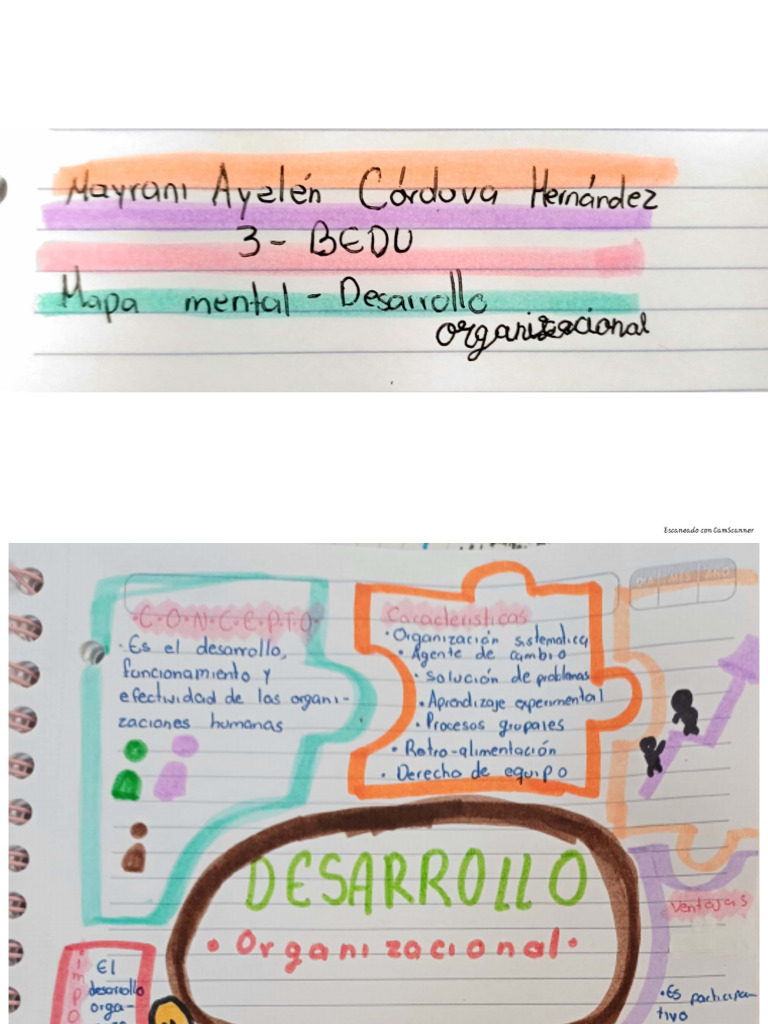 Mayrani Ayelén Córdova Hernández
3 - BEDU
Mapa mental - Desarrollo
organizacional
Escaneado con CamScanner
DIA MES AÑO
C·O·N·C·E·P·T·O
· Es el desarrollo,
funcionamiento y
efectividad de las organi-
zaciones humanas
Características
· Organización sistematica
· Agente de cambio
· Solución de problemas
· Aprendizaje experimental
· Procesos grupales
· Retro-alimentación
· Derecho de equipo
DESARROLLO
· Organizacional ·
Ventajas
· Es participa-
tivo
IMPO
El
desarrollo
orga-